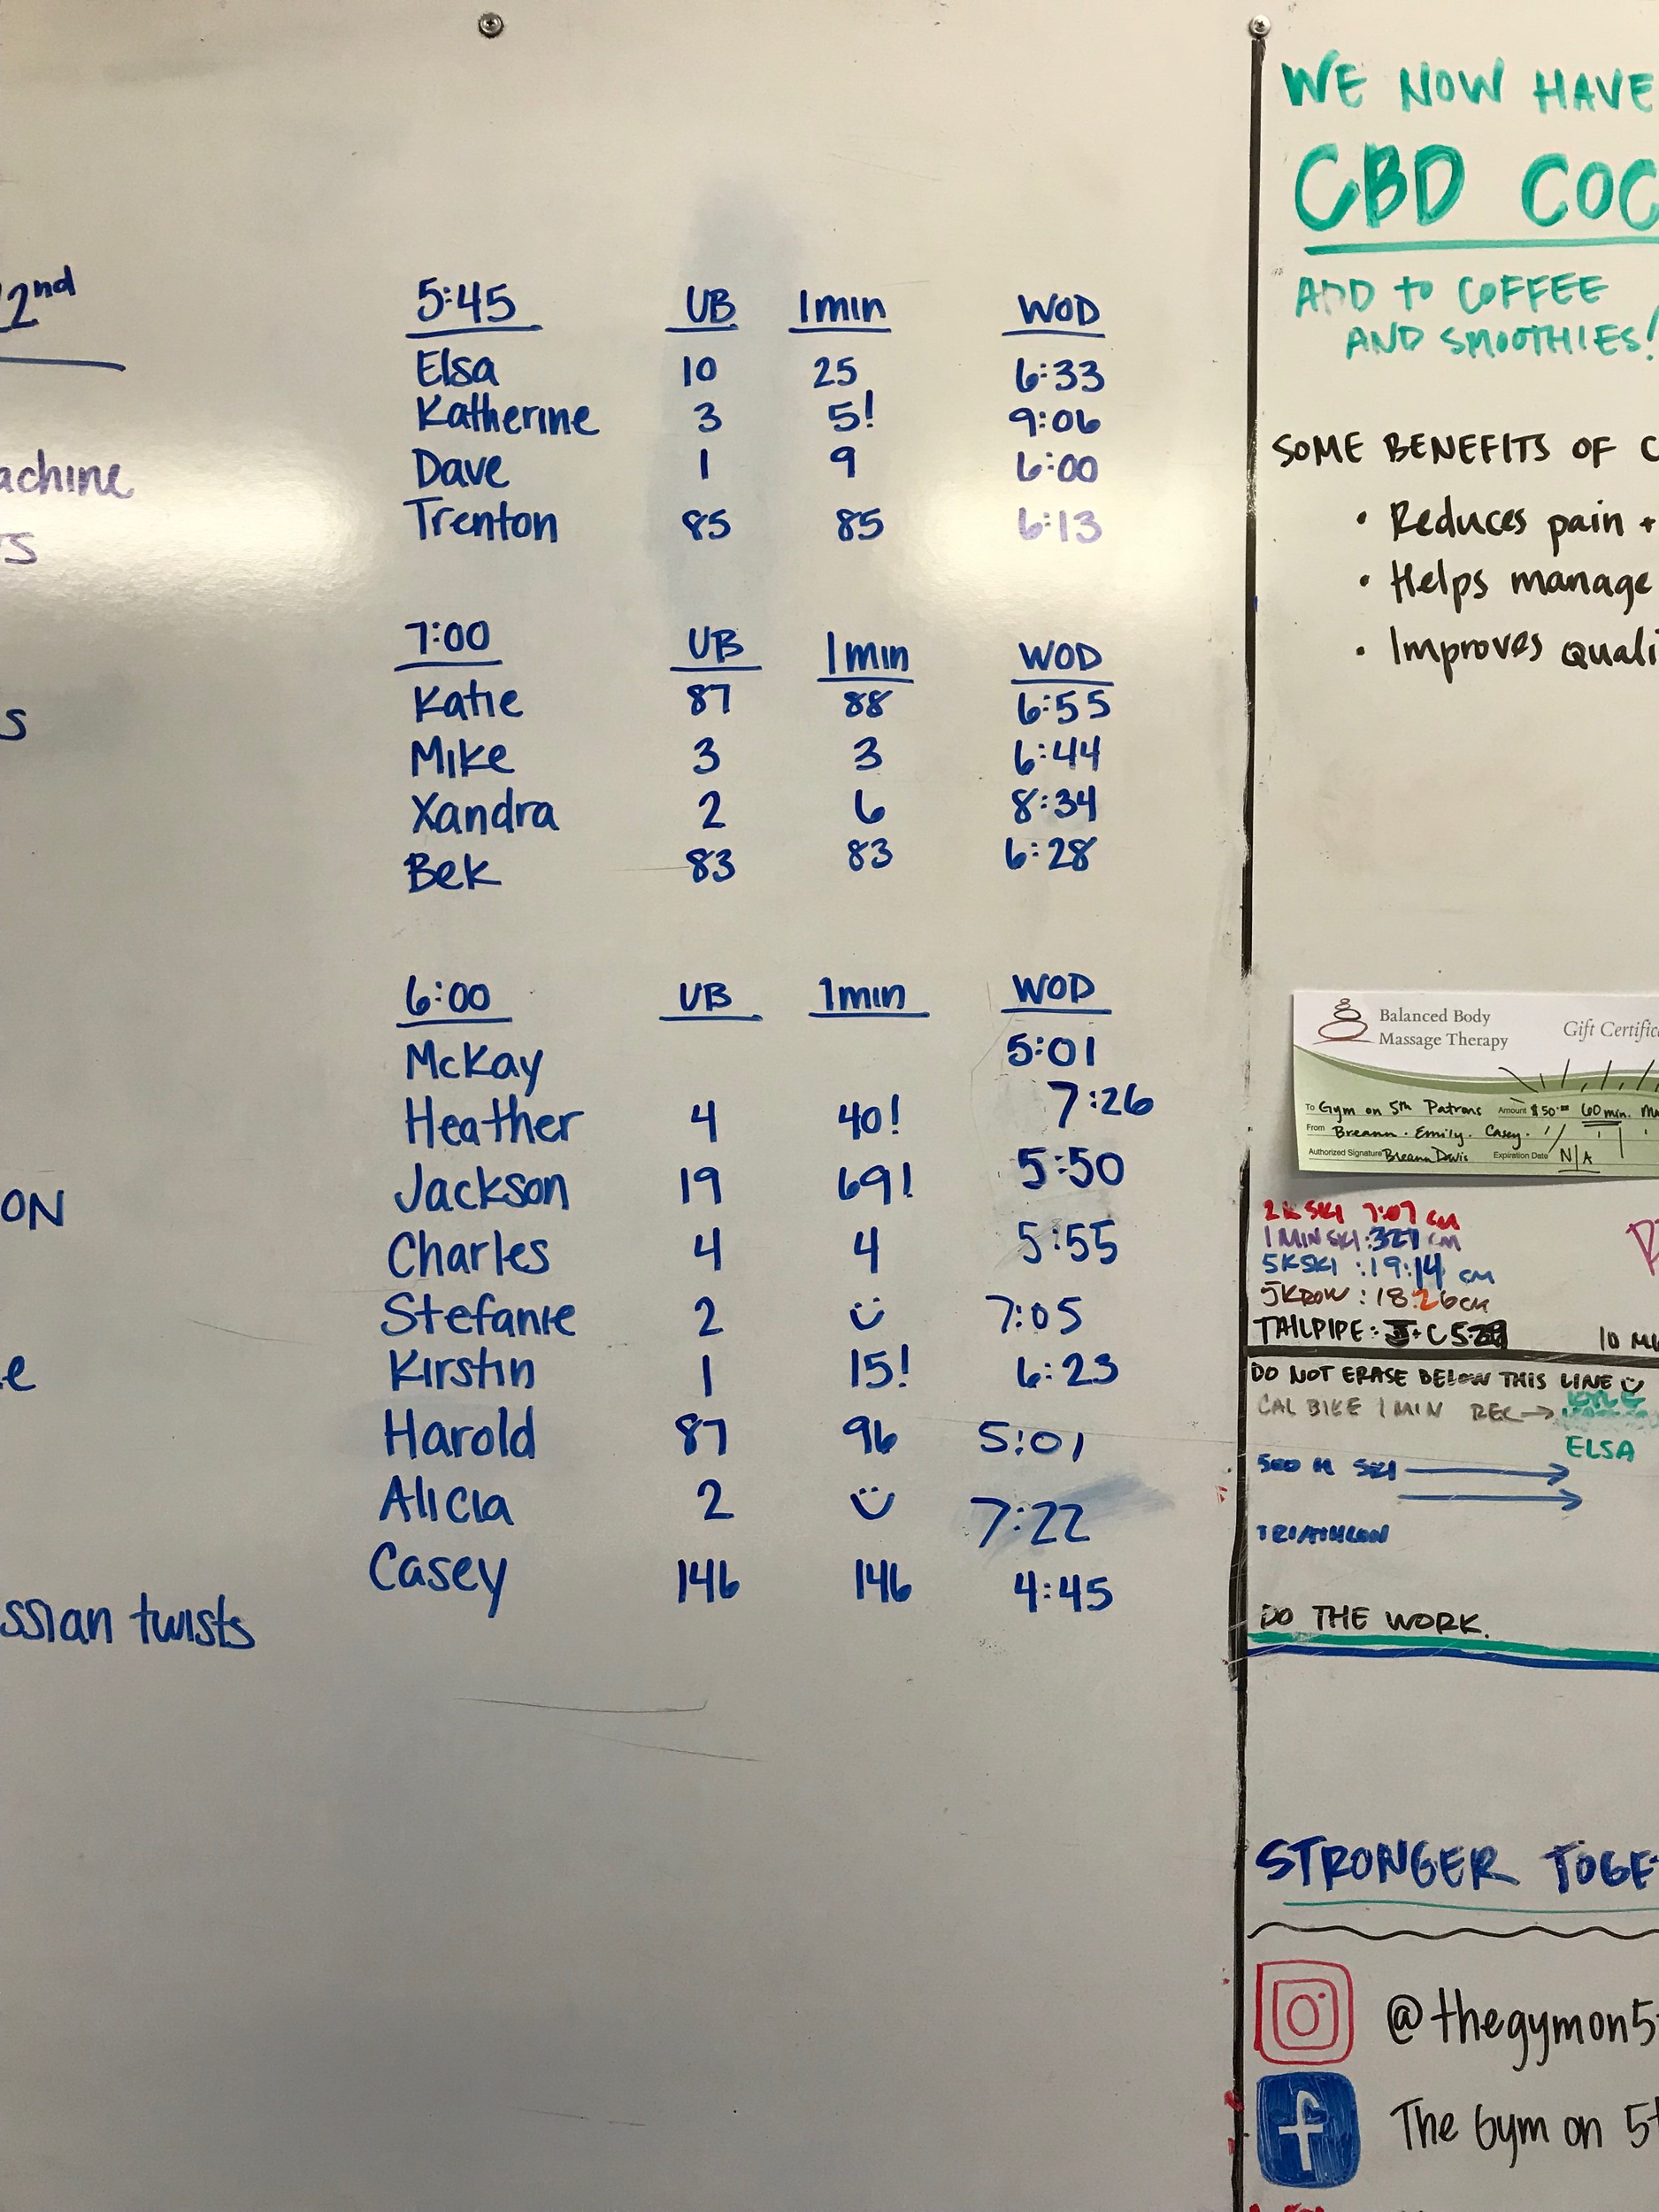 2nd
achine
rs
s
ON
e
ssian twists
5:45 UB 1min WOD
Elsa 10 25 6:33
Katherine 3 5! 9:06
Dave 1 9 6:00
Trenton 85 85 6:13
7:00 UB 1min WOD
Katie 87 88 6:55
Mike 3 3 6:44
Xandra 2 6 8:34
Bek 83 83 6:28
6:00 UB 1min WOD
McKay 5:01
Heather 4 40! 7:26
Jackson 19 69! 5:50
Charles 4 4 5:55
Stefanie 2 7:05
Kirstin 1 15! 6:23
Harold 87 96 5:01
Alicia 2 7:22
Casey 146 146 4:45
WE NOW HAVE
CBD COC
ADD to COFFEE
AND SMOOTHIES!
SOME BENEFITS OF C
• Reduces pain +
• Helps manage
• Improves quali
Balanced Body
Massage Therapy
Gift Certific
To Gym on 5th Patrons Amount $50.00 60 min. Ma
From Breann. Emily. Casey.
Authorized Signature Breann Davis Expiration Date N/A
2K SKI 7:07 CM
1 MIN SKI: 327 CM
5K SKI : 19:14 CM
5K ROW : 18:26 CM
TAILPIPE: + C 10 M
DO NOT ERASE BELOW THIS LINE
CAL BIKE 1 MIN REC →
ELSA
500 M SKI
TRIATHLON
DO THE WORK.
STRONGER TOGE
@thegymon5t
The Gym on 5t